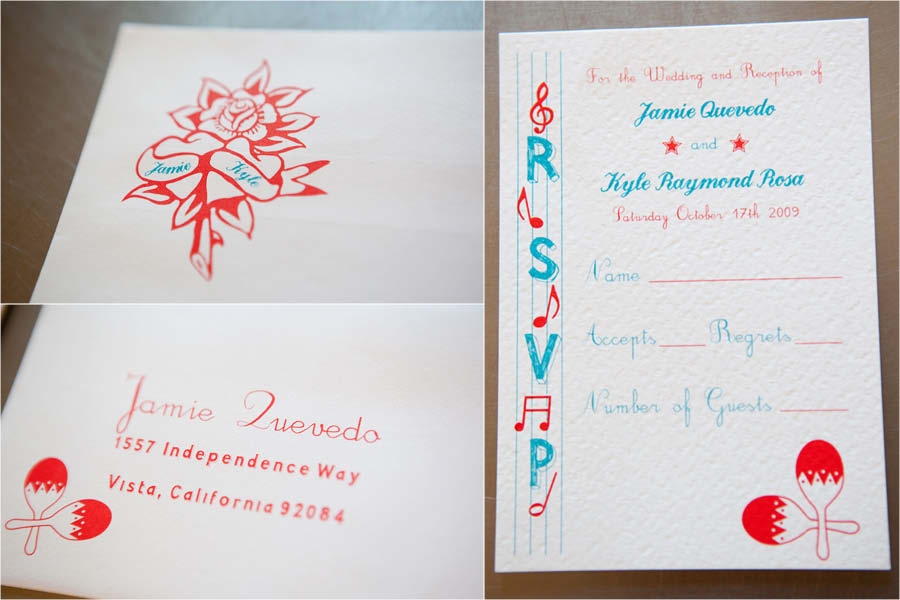 Jamie Kyle
Jamie Quevedo
1557 Independence Way
Vista, California 92084
For the Wedding and Reception of
Jamie Quevedo
and
Kyle Raymond Rosa
Saturday October 17th 2009
R
S
V
P
Name
Accepts Regrets
Number of Guests